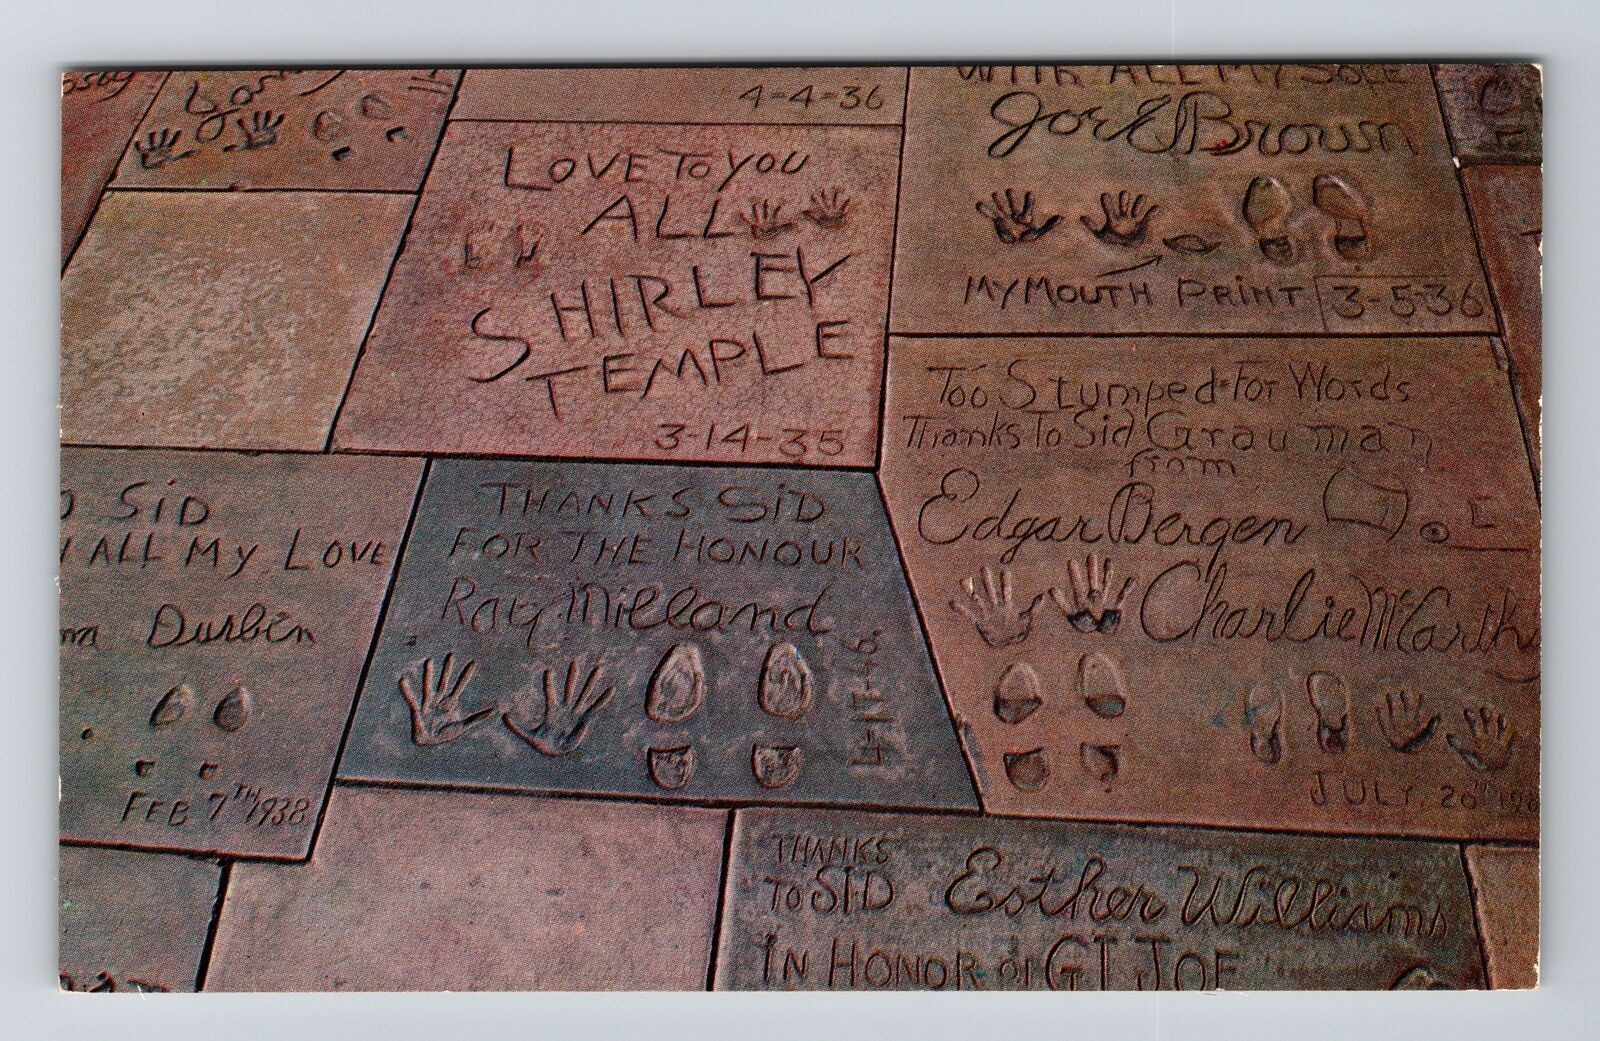 osby
4-4-36
WITH ALL MY SOLE
Joe E Brown
MY MOUTH PRINT 3-5-36
LOVE TO YOU
ALL
SHIRLEY
TEMPLE
3-14-35
Too Stumped For Words
Thanks To Sid Grauman
from
Edgar Bergen
Charlie McCarthy
JULY. 20TH
SID
ALL MY LOVE
Durbin
FEB 7TH 1938
THANKS SID
FOR THE HONOUR
Ray Milland
4-17-46
THANKS
TO SID
Esther Williams
IN HONOR OF GI JOE